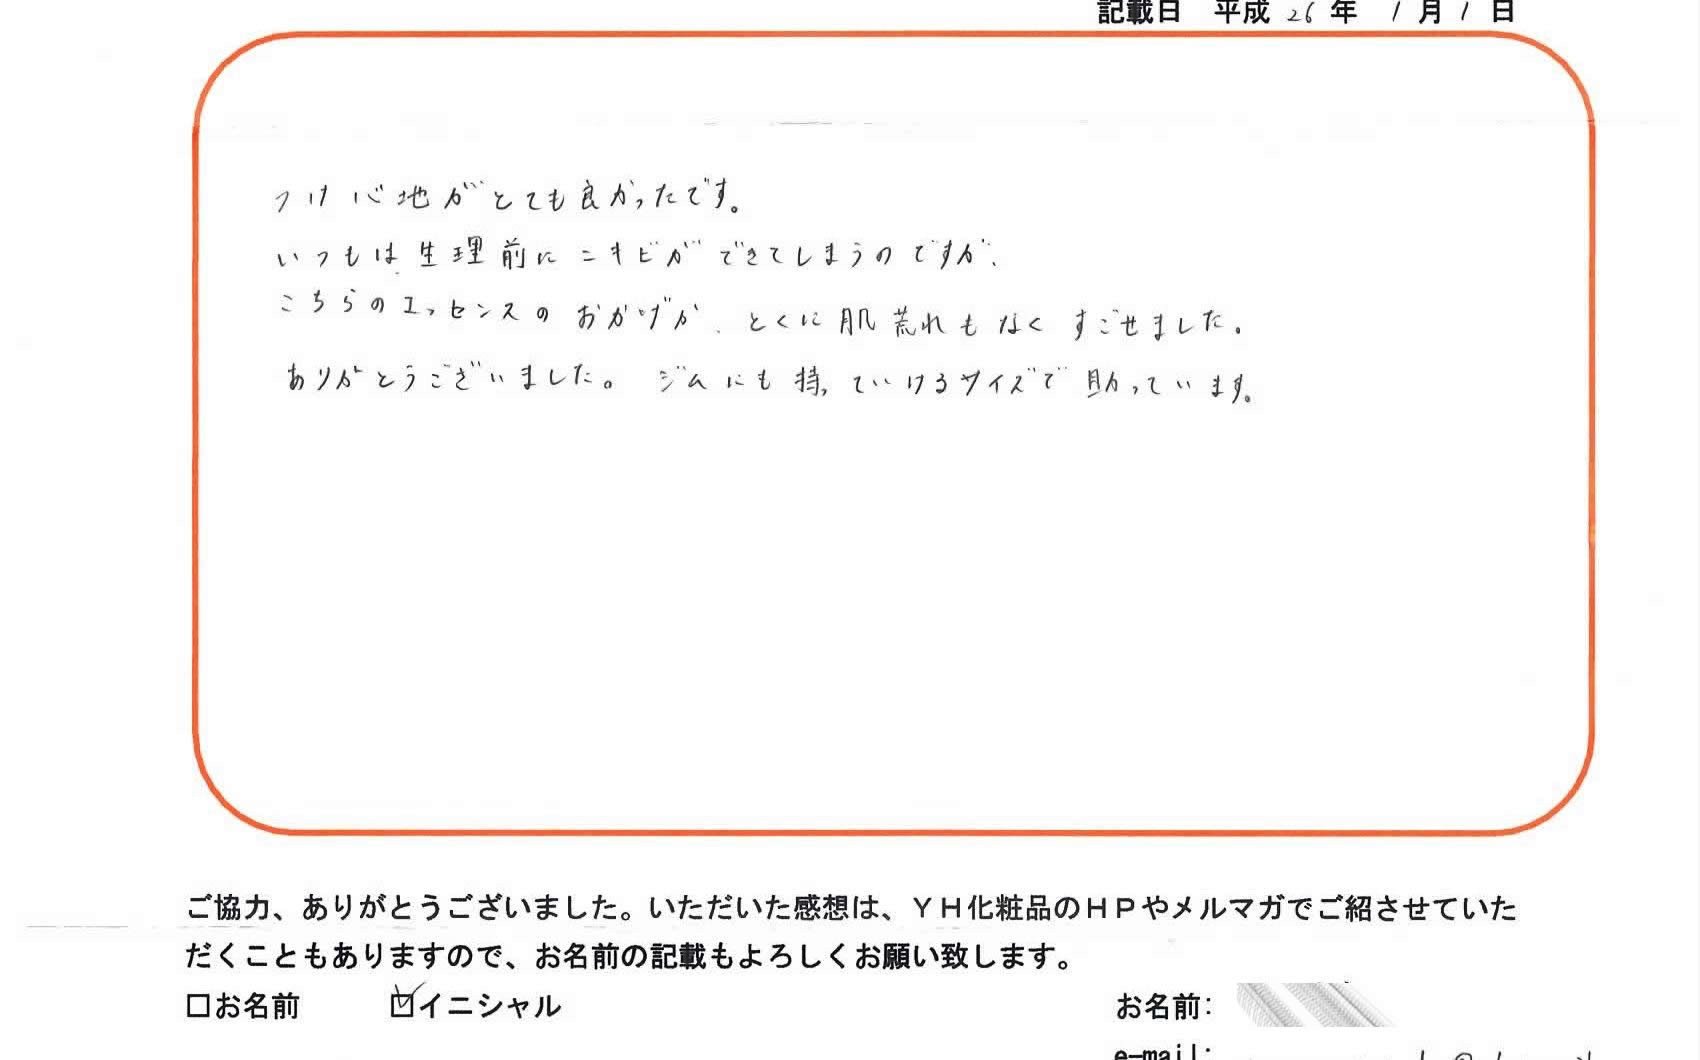 記載日 平成 26 年 1 月 1 日
つけ心地がとても良かったです。
いつもは生理前にニキビができてしまうのですが、
こちらのエッセンスのおかげか、とくに肌荒れもなくすごせました。
ありがとうございました。ジムにも持っていけるサイズで助っています。
ご協力、ありがとうございました。いただいた感想は、ＹＨ化粧品のＨＰやメルマガでご紹させていた
だくこともありますので、お名前の記載もよろしくお願い致します。
□お名前 ☑イニシャル お名前：
e-mail: